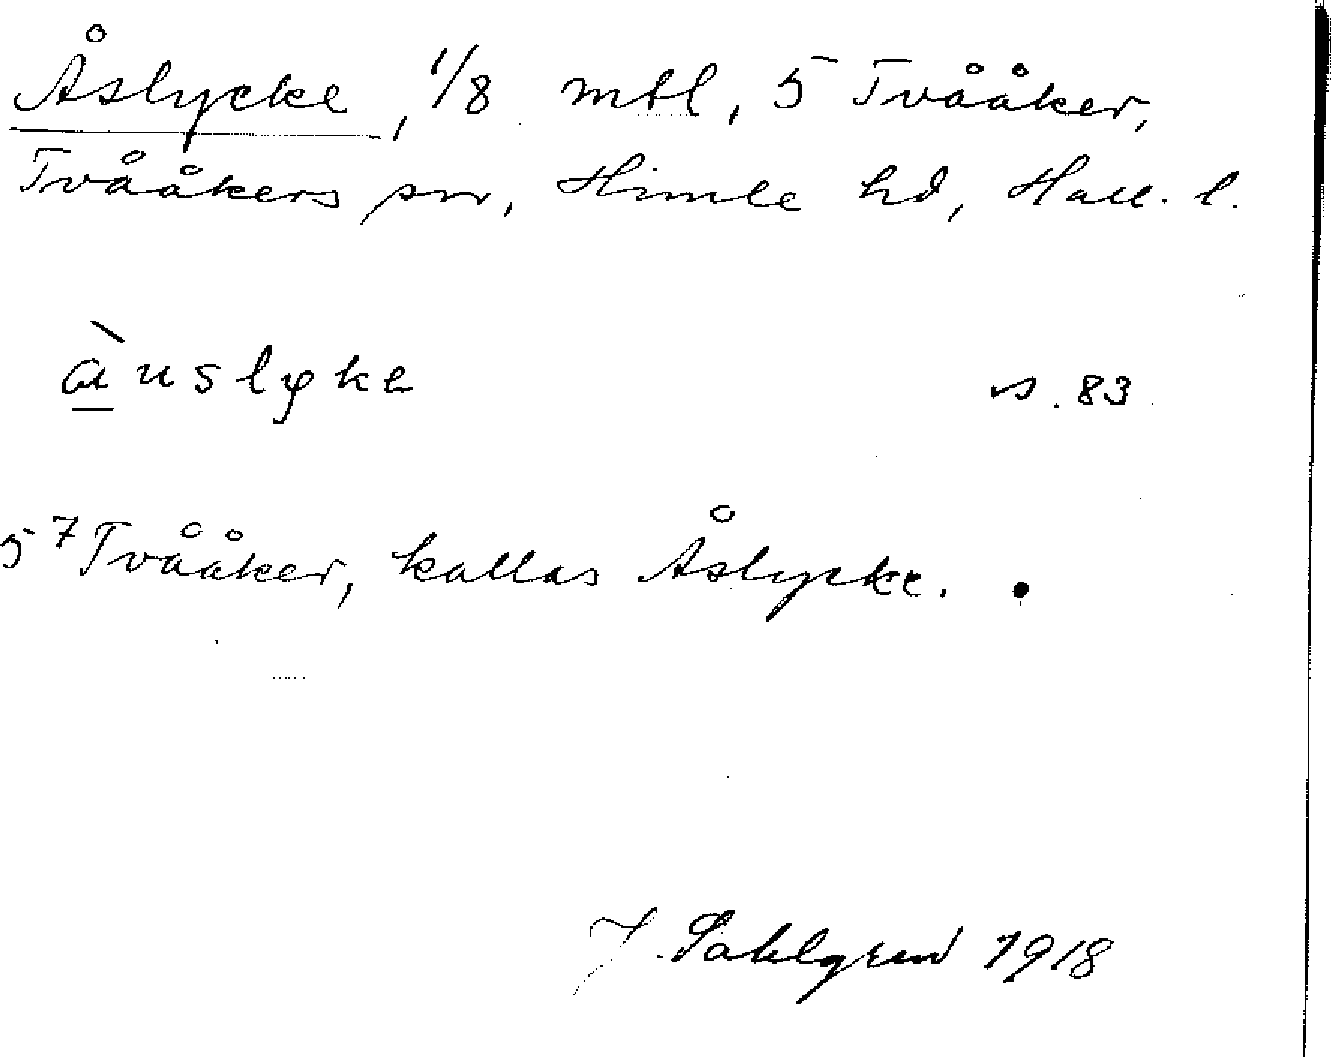 Åslycke, 1/8 mtl, 5 Tvååker,
Tvååkers sn, Himle hd, Hall. l.
àuslyke s. 83
5⁷ Tvååker, kallas Åslycke.
J. Sahlgren 1918